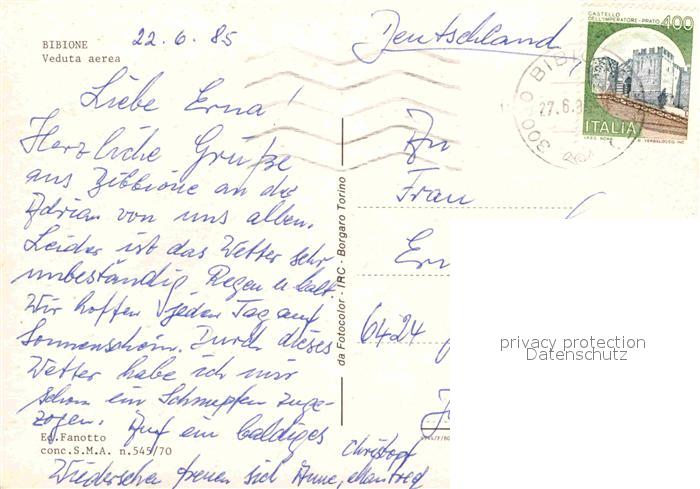 BIBIONE
Veduta aerea
22.6.85
Deutschland
CASTELLO
DELL'IMPERATORE-PRATO
400
ITALIA
27.6.8
30020 BIBI
Liebe Erna!
Herzliche Grüße
aus Bibbione an der
Adria von uns allen.
Leider ist das Wetter sehr
unbeständig Regen u. kalt.
Wir hoffen jeden Tag auf
Sonnenschein. Durch dieses
Wetter habe ich mir
schon ein Schnupfen zuge-
zogen. Auf ein baldiges
Wiedersehen freuen sich Anne, Manfred
Christoph
Ed. Fanotto
conc. S.M.A. n.545/70
da Fotocolor - IRC - Borgaro Torino
An
Frau
Ern
6424
privacy protection
Datenschutz